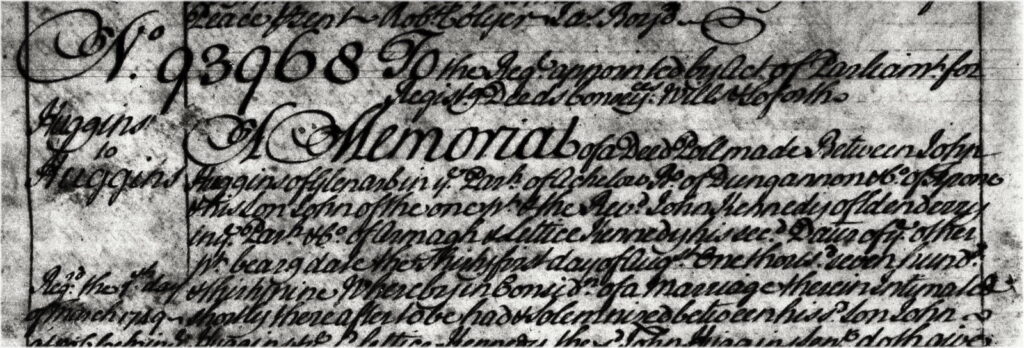 Peace &
No. 93968 To the Regr. appointed by Act of Parliamt. for
Registg Deeds Conveys. Wills & so forth
Huggins
to
Huggins
A Memorial of a Deed Poll made Between John
Huggins of Glenarb in ye. Parh. of Aghelow Bo. of Dungannon & Co. of Tyrone
& his son John of the one pt. & the Revd. John Kennedy of
in ye. Parh. & Co. of Armagh & Lettice Kennedy his secd. Datur of ye. other
pt. bearg date the Thirty first day of Augt. One thousd. seven hundd.
& thirty nine Whereby in Considn. of a Marriage therein Intimated
shortly thereafter to be had & solemnized between his sd. son John
Regd. the 7th day
of March 1749
Lettice Kennedy the sd. John Huggins senr. doth give